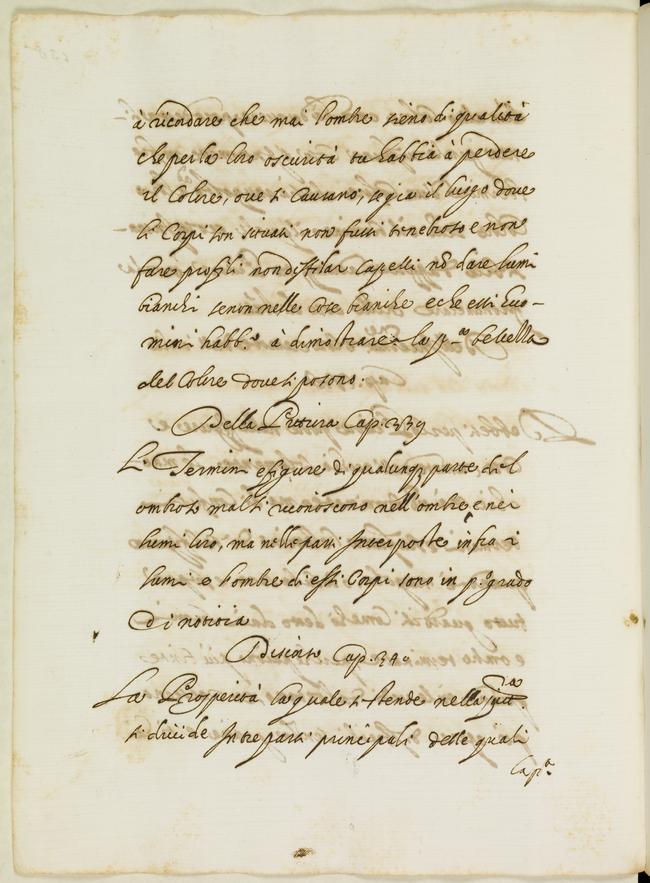 à ricordare che mai l'ombre sieno di qualità
che per la loro oscurità tu habbia à perdere
il Colore, ove si causano, se gia il luogo dove
li Corpi son situati non fussi tenebroso e non
fare profili non disfilar capelli nō dare lumi
bianchi se non nelle cose bianche e che essi lu-
mini habb.º à dimostrare la p.ª bellezza
del Colore dove si posono.
Della Pittura Cap. 339
Li Termini e figure di qualunq; parte del
ombrosi mal si riconoscono nell'ombre e nei
lumi loro, mà nelle parti Interposte infra i
lumi e l'ombre di essi Corpi sono in p.º grado
di notitia
Discorso Cap. 340
La Prosperità la quale si stende nella
si divide In tre parti principali delle quali
La p.ª